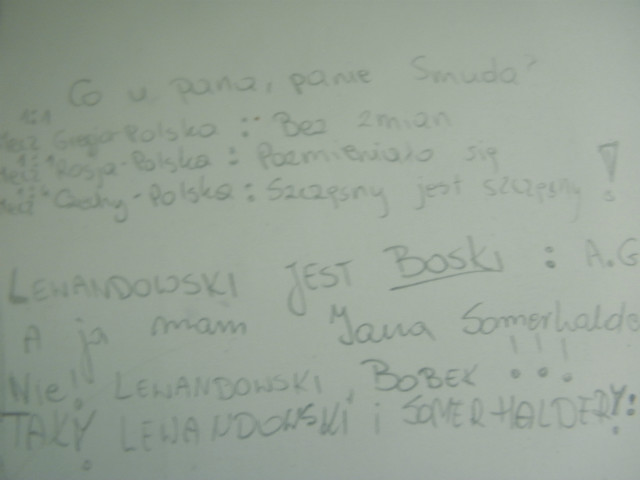 Co u pana, panie Smuda?
1:1
Mecz Grecja-Polska : Bez zmian
1:1
Mecz Rosja-Polska : Pozmieniało się
Mecz Czechy-Polska : Szczęsny jest szczęsny !
LEWANDOWSKI JEST BOSKI : A.G
A ja mam Jana Somerhalde
Nie! LEWANDOWSKI, BOBEK !!!
TAKY LEWANDOWSKI i SOMERHALDERY!